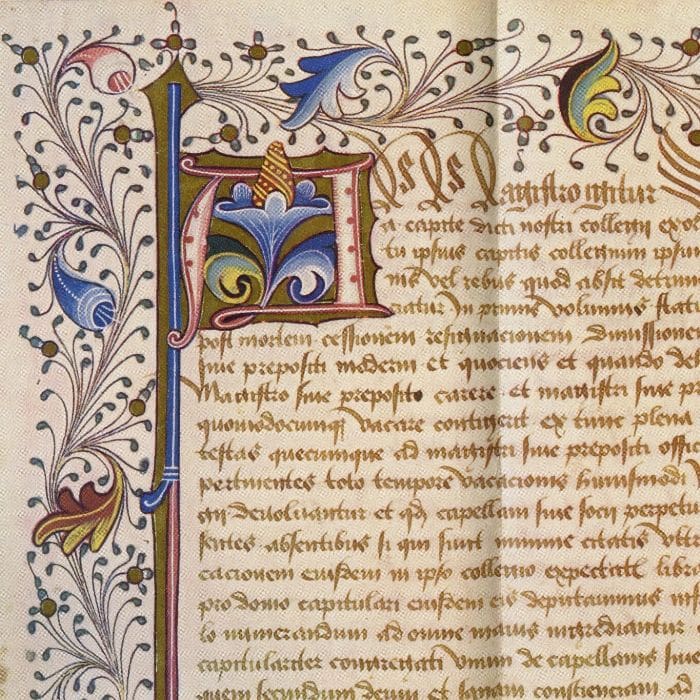 a capite dicti nostri collegii exo
tu ipsius capitis collegium ipsum
nis vel rebus quod absit detrim
riatur In primis volumus stat
post mortem cessionem resignacionem dimissionem
siue prepositi moderni et quociens et quando de
Magistro siue preposito carere et magistri siue p
quomodocumqꝫ vacare contigerit ex tunc plena
testas quecumque ad magistri siue prepositi offic
pertinentes toto tempore vacacionis huiusmodi
deuoluantur et capellani siue socij perpetui
sentes absentibus si qui fuint minime citatis vltr
cacionem eiusdem in ipso collegio expectatt libra
pro domo capitulari eiusdem eis deputauimus
lo numerandum ad omne maius ingrediantur
capitulariter congregati vnum de capellanis siue
quem secundum deum et sanam conscienciam